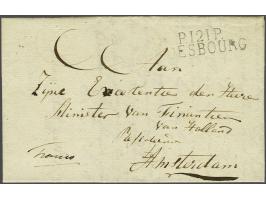 P.121.P.
ESBOURG
Aan
Zijne Excelentie den Heere
Minister van Finantien
van Holland
Amsterdam
Franco